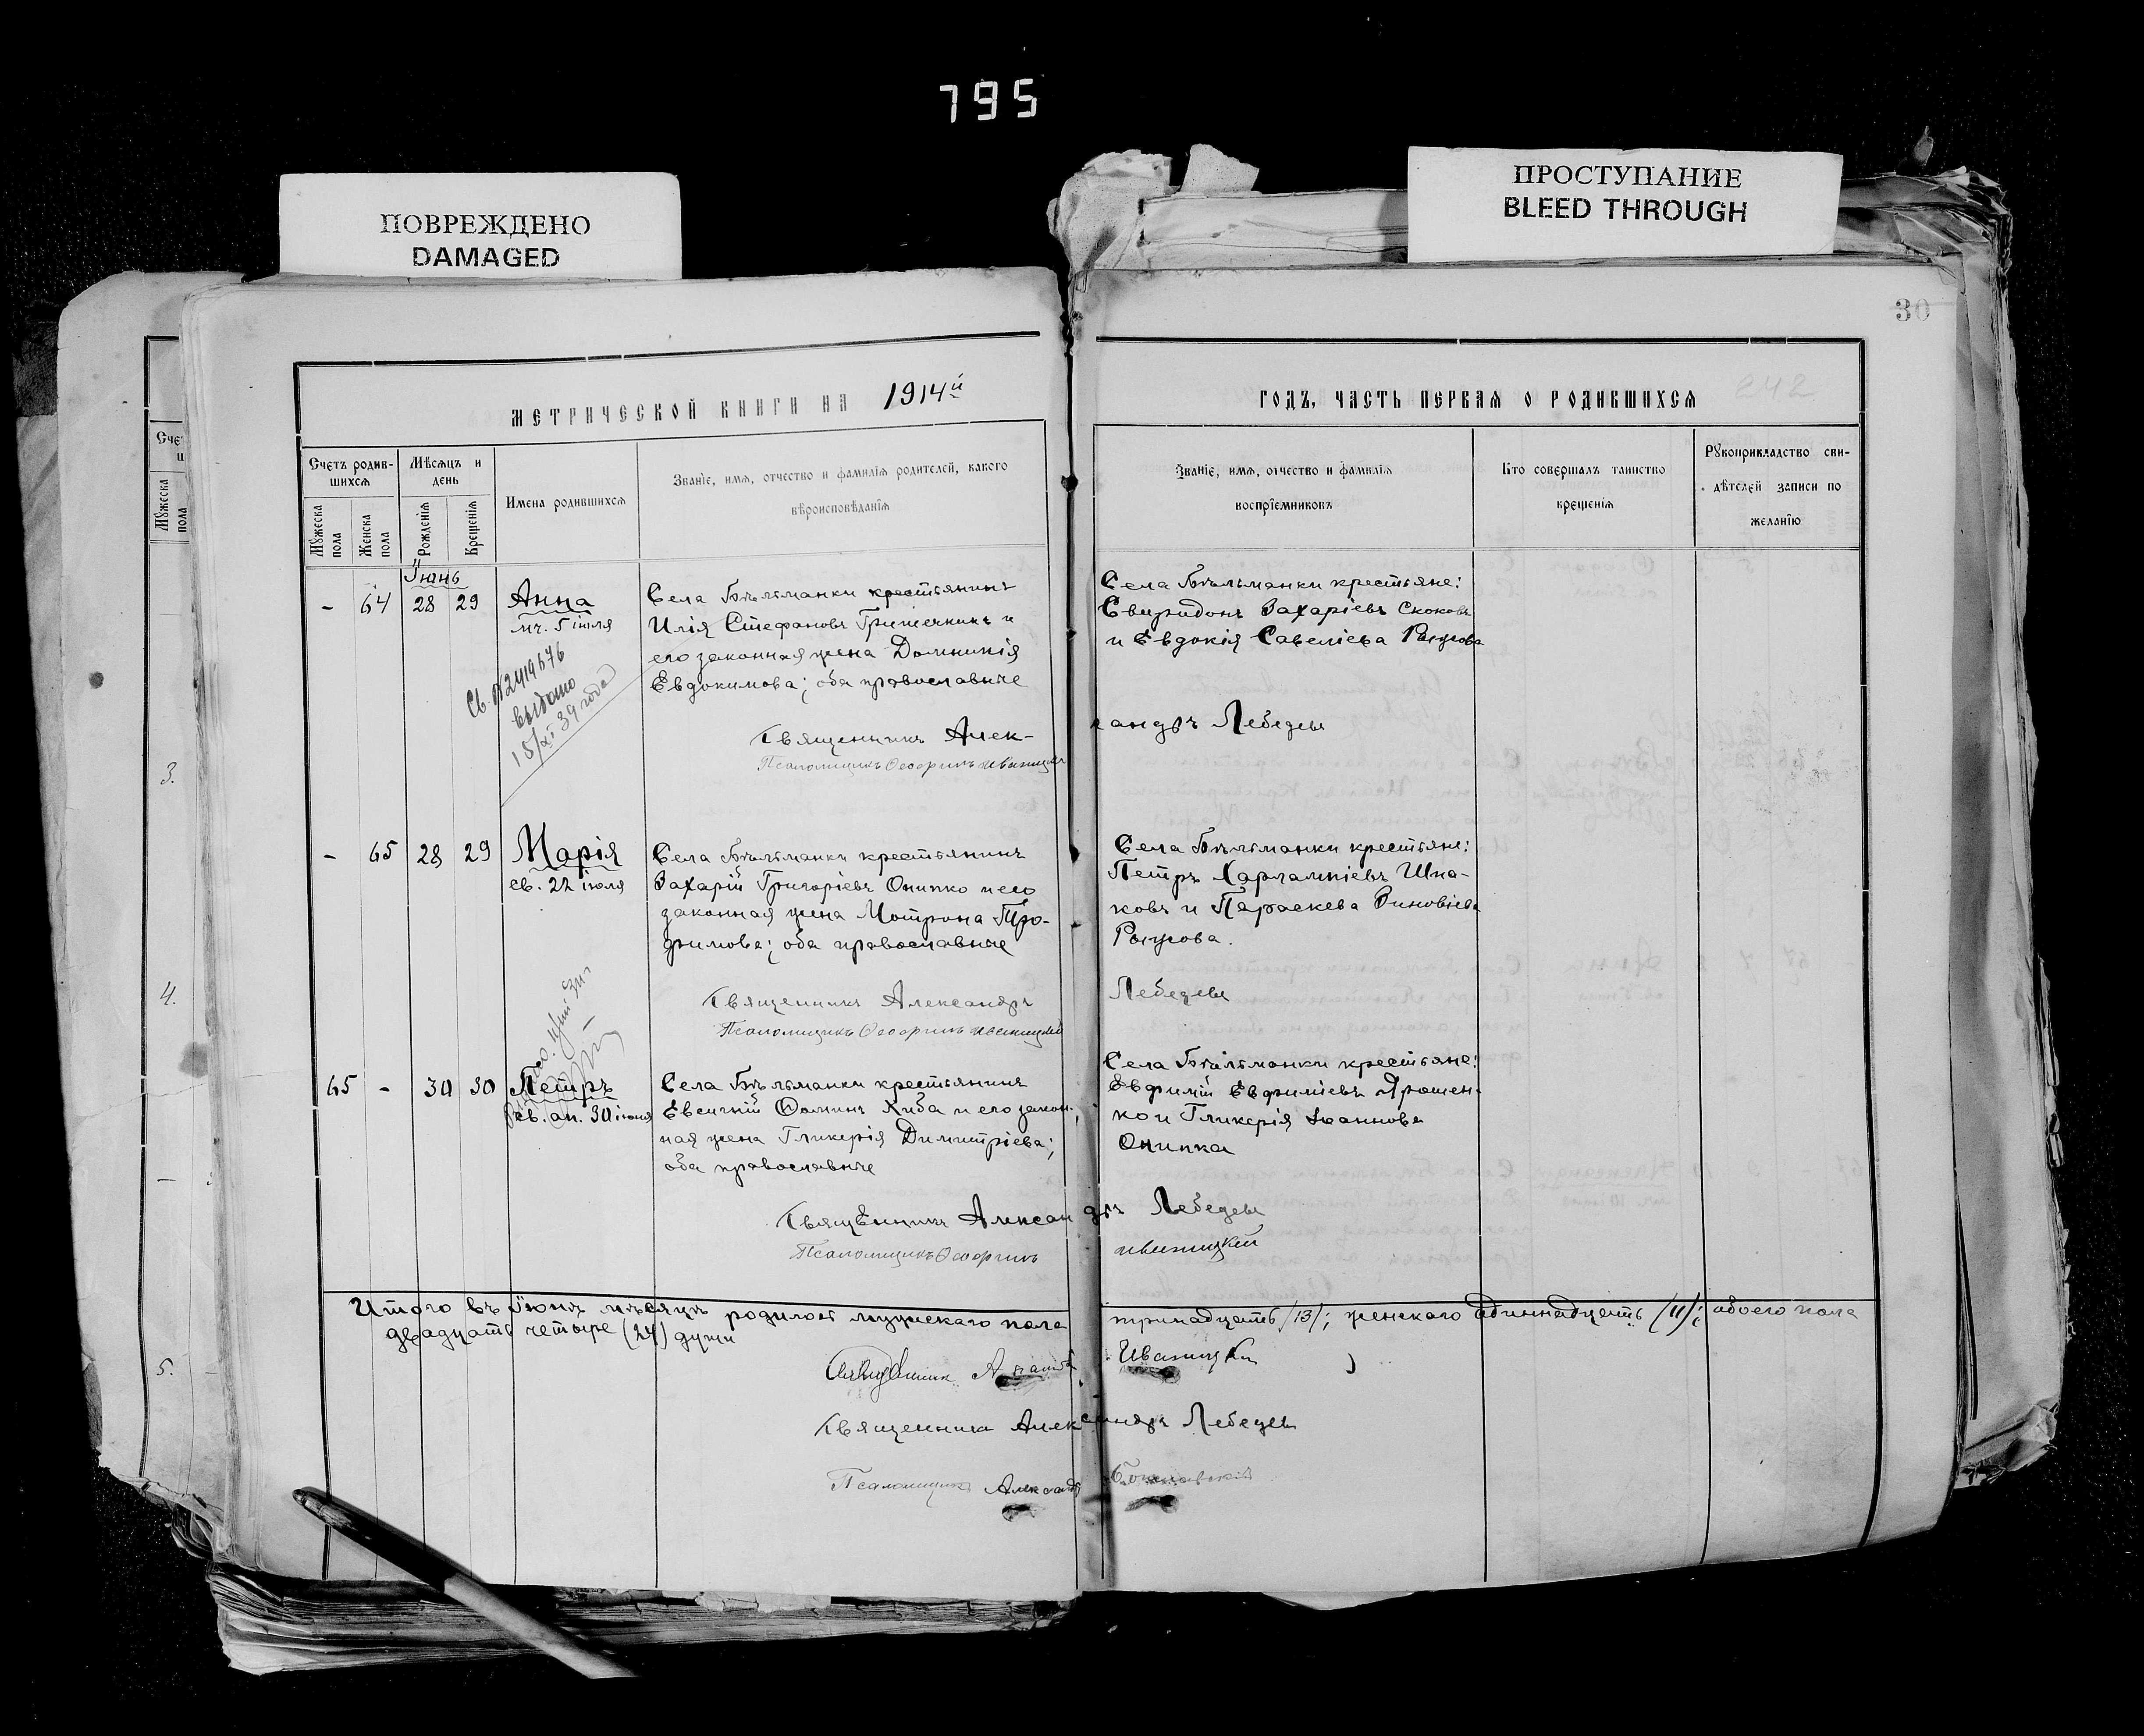 795
ПОВРЕЖДЕНО
DAMAGED
ПРОСТУПАНИЕ
BLEED THROUGH
30
МЕТРИЧЕСКОЙ КНИГИ НА 1914й
ГОДЪ, ЧАСТЬ ПЕРВАЯ О РОДИВШИХСЯ
242
Счетъ родив-
шихся
Мужеска пола
Женска пола
Мѣсяцъ и
день
Рожденія
Крещенія
Имена родившихся
Званіе, имя, отчество и фамилія родителей, какого
вѣроисповѣданія
Званіе, имя, отчество и фамилія
воспріемниковъ
Кто совершалъ таинство
крещенія
Рукоприкладство сви-
дѣтелей записи по
желанію
Мужеска пола
3.
4.
5.
Іюнь
- 64 28 29 Анна
мч. 5 іюля
Св. №2419676
выдано
15/XI 39 года
Села Бѣльманки крестьянинъ
Илія Стефановъ и
его законная жена Домникія
Евдокимова; оба православные
Села Бѣльманки крестьяне:
Свиридонъ Захаріевъ Скоковъ
и Евдокія Савеліева Рыжова
Священникъ Александръ Лебедевъ
Псаломщикъ Ѳеофилъ Ивницкій
- 65 28 29 Марія
св. 22 іюля
Села Бѣльманки крестьянинъ
Захарій Григоріевъ Онипко и его
законная жена Мотрона Тро-
фимова; оба православные
Села Бѣльманки крестьяне:
Петръ Харлампіевъ Шпа-
ковъ и Параскева Зиновіева
Рыжова.
Священникъ Александръ Лебедевъ
Псаломщикъ Ѳеофилъ Ивницкій
65 - 30 30 Петръ
св. ап. 30 іюня
Села Бѣльманки крестьянинъ
Евсигній Ѳоминъ Хиба и его закон-
ная жена Гликерія Димитріева;
оба православные
Села Бѣльманки крестьяне:
Евфимій Евфиміевъ Ярошен-
ко и Гликерія Іоаннова
Онипка
Священникъ Александръ Лебедевъ
Псаломщикъ Ѳеофилъ Ивницкій
Итого въ Іюнѣ мѣсяцѣ родилось мужескаго пола тринадцать /13/; женскаго одиннадцать /11/; обоего пола
двадцать четыре (24) души
Священникъ Александръ Лебедевъ
Псаломщикъ Александръ